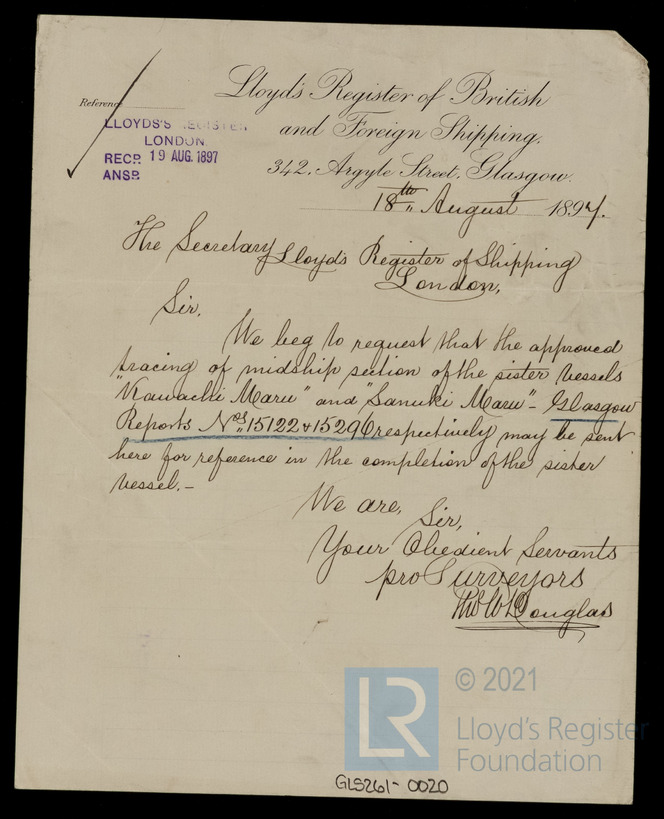 Lloyd's Register of British
and Foreign Shipping.
342, Argyle Street, Glasgow.
Reference
LLOYDS'S REGISTER
LONDON.
RECD. 19 AUG. 1897
ANSD.
18th August 1897.
The Secretary Lloyd's Register of Shipping
London,
Sir.
We beg to request that the approved
tracing of midship section of the sister vessels
"Kawachi Maru" and "Sanuki Maru" - Glasgow
Reports Nos. 15122 & 15296 respectively may be sent
here for reference in the completion of the sister
vessel.-
We are,
Sir,
Your Obedient Servants
pro Surveyors
Douglas
LR
© 2021
Lloyd's Register
Foundation
GLS261-0020